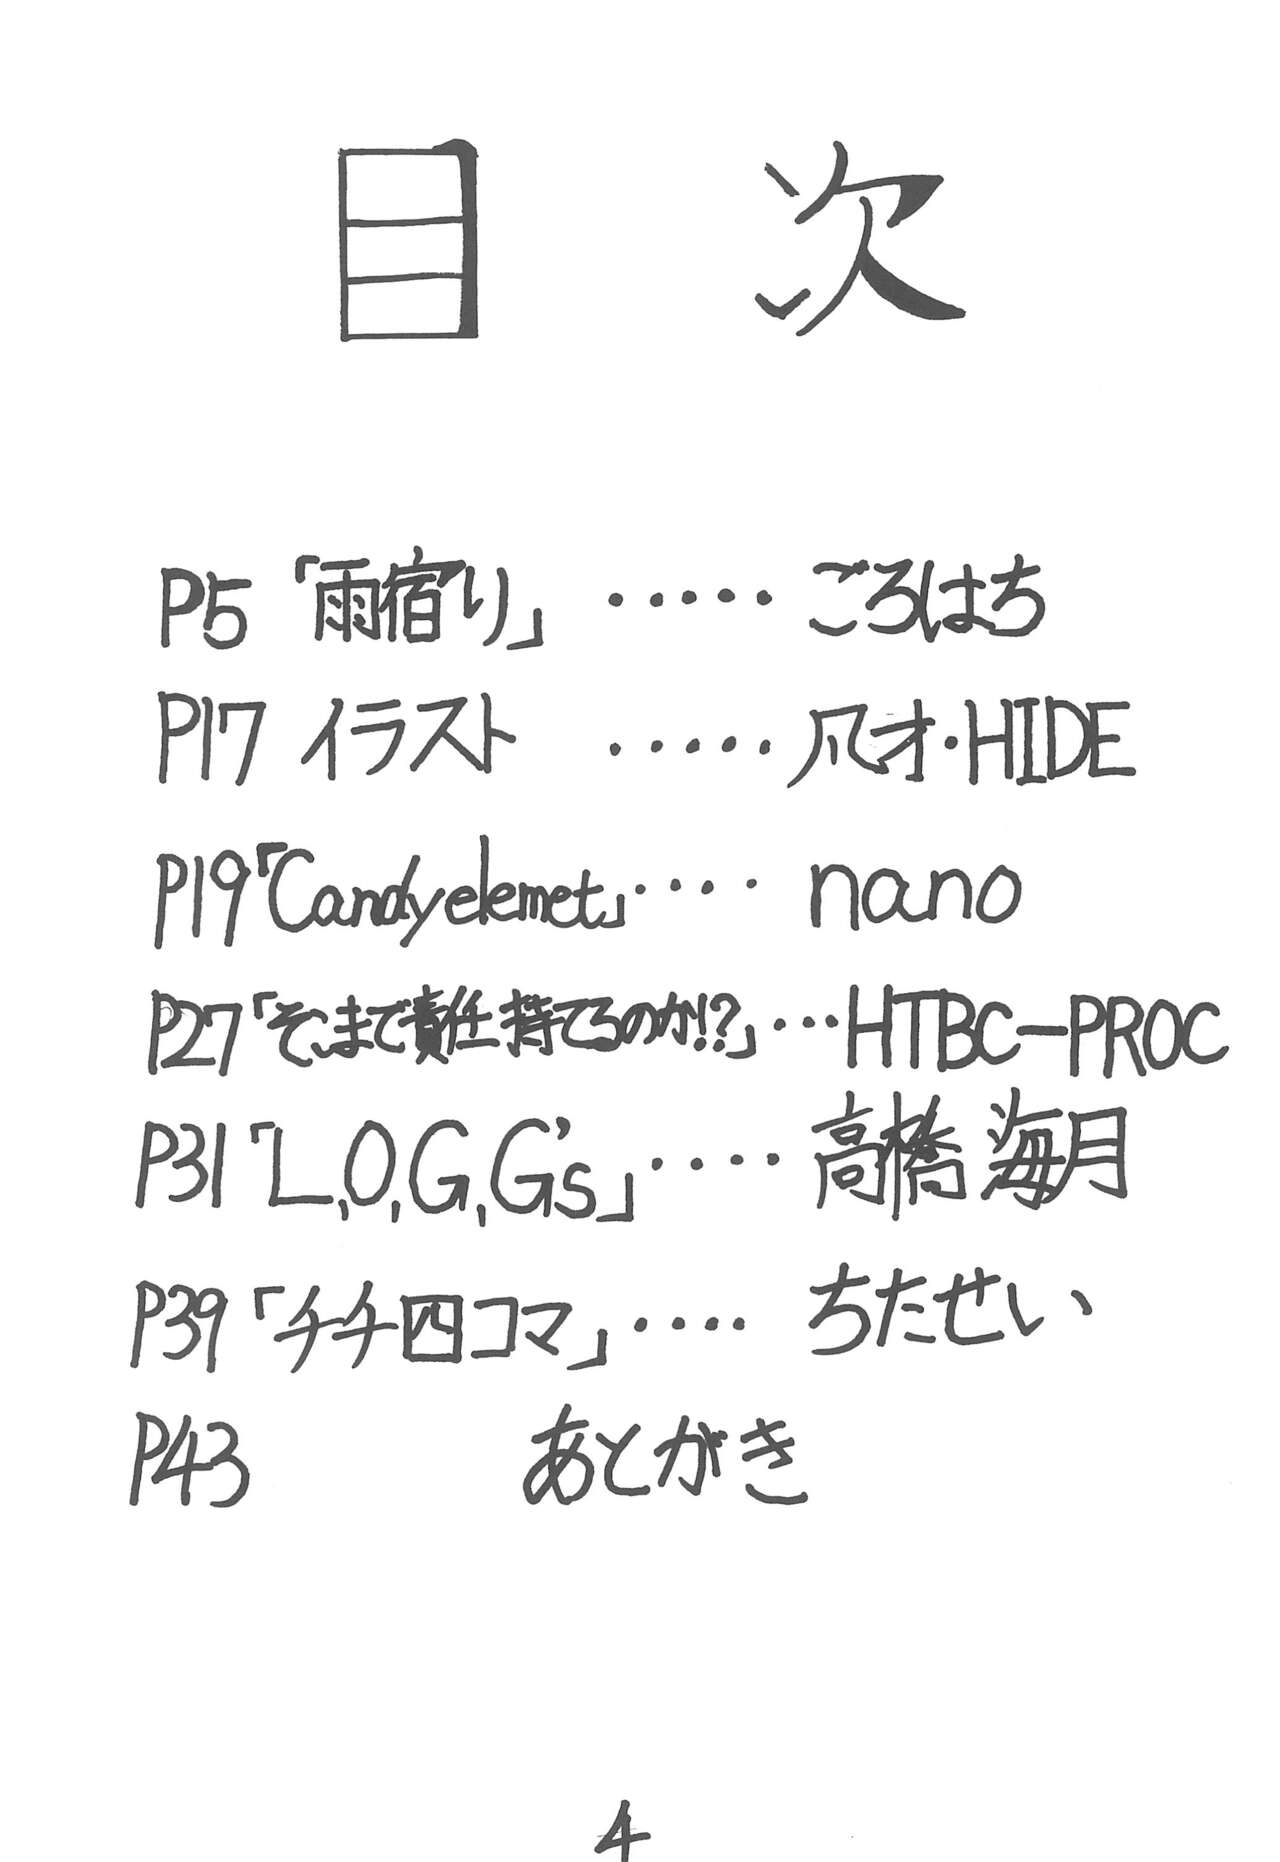 目次
P5「雨宿り」・・・・・ごろはち
P17 イラスト ・・・・・爪才・HIDE
P19「Candyelemet」・・・・nano
P27「そこまで責任持てるのか!?」・・・HTBC-PROC
P31「L,O,G,G's」・・・・高橋 海月
P39「チチ四コマ」・・・・ちたせい
P43 あとがき
4